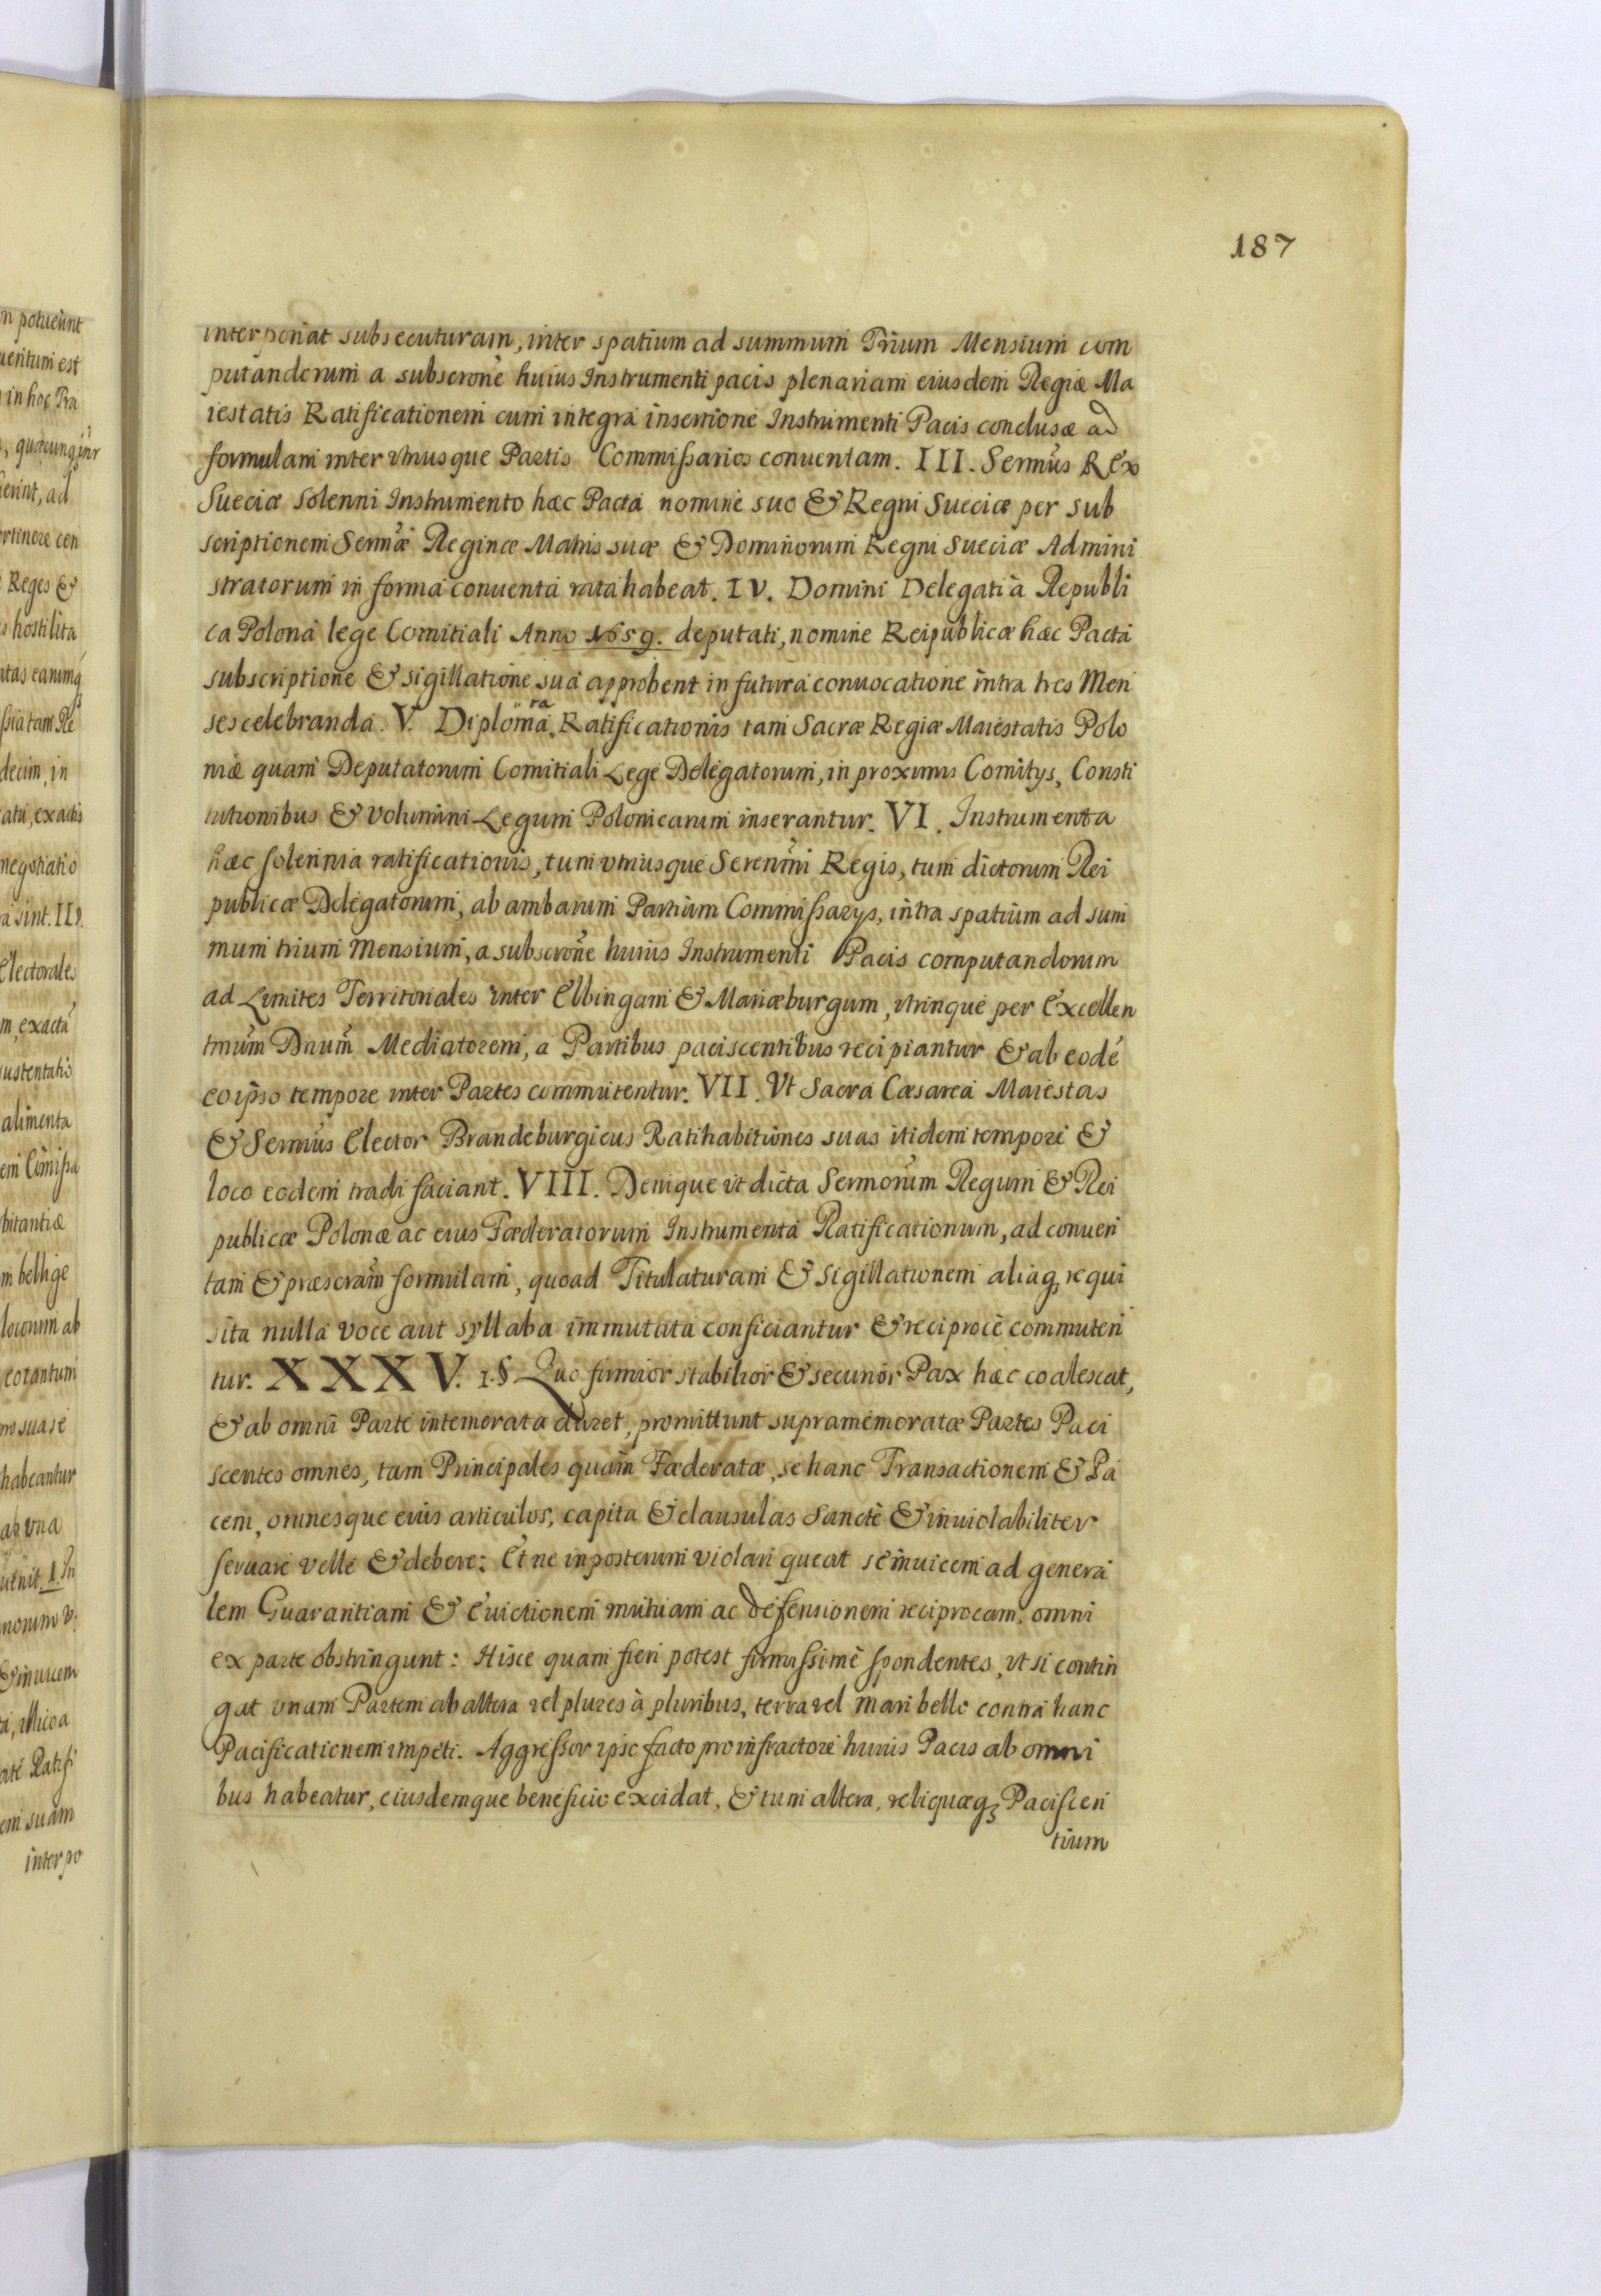 187
interponat subsecuturam, inter spatium ad summum Trium Mensium com
putanderum a subscrõne huius Instrumenti pacis plenariam eiusdem Regiæ Ma
iestatis Ratificationem cum integra insertione Instrumenti Pacis conclusæ ad
formulam inter vtriusque Partis Commißarios conuentam. III. Sermũs Rex
Sueciæ solenni Instrumento hæc Pacta nomine suo & Regni Sueciæ per sub
scriptionem Sermæ̃ Reginæ Matris suæ & Dominorum Regni Sueciæ Admini
stratorum in forma conuenta rata habeat. IV. Domini Delegati à Republi
ca Polona lege Comitiali Anno 1659. deputati, nomine Reipublicæ hæc Pacta
subscriptione & sigillatione sua approbent in futura conuocatione intra tres Men
ses celebranda. V. Diplomata Ratificationis tam Sacræ Regiæ Maiestatis Polo
niæ quam Deputatorum Comitiali Lege Delegatorum, in proximis Comitys, Consti
tutionibus & volumini Legum Polonicarum inserantur. VI. Instrumenta
hæc solennia ratificationis, tum vtriusque Sereñmi Regis, tum dictorum Rei
publicæ Delegatorum, ab ambarum Partium Commißarys, intra spatium ad sum
mum trium Mensium, a subscrõne huius Instrumenti Pacis computandorum
ad Limites Territoriales inter Elbingam & Mariæburgum, vtrinque per Excellen
tmũm Dnũm Mediatorem, a Partibus paciscentibus recipiantur & ab eodé
eoipso tempore inter Partes commutentur. VII. Vt Sacra Cæsarea Maiestas
& Sermũs Elector Brandeburgicus Ratihabitiones suas itidem tempore &
loco eodem tradi faciant. VIII. Denique vt dicta Sermorũm Regum & Rei
publicæ Polonæ ac eius Fæderatorum Instrumenta Ratificationum, ad conuen
tam & præscrãm formulam, quoad Titulaturam & Sigillationem aliaq3 requi
sita nulla voce aut syllaba immutata conficiantur & reciprocè commuten
tur. XXXV. 1.§ Quo firmior stabilior & securior Pax hæc coalescat,
& ab omni Parte intemerata duret, promittunt supramemoratæ Partes Paci
scentes omnes, tam Principales quam Fæderatæ, se hanc Transactionem & Pa
cem, omnesque eius articulos, capita & clausulas Sanctè & inuiolabiliter
seruare velle & debere: Et ne inposterum violari queat se inuicem ad genera
lem Guarantiam & Euictionem mutuam ac defensionem reciprocam, omni
ex parte obstringunt: Hisce quam fieri potest firmissimè spondentes, vt si contin
gat vnam Partem ab altera vel plures à pluribus, terra vel mari bello contra hanc
Pacificationem impeti. Aggreßor ipso facto pro infractore huius Pacis ab omni
bus habeatur, eiusdemque beneficio excidat, & tum altera, reliquæq3 Paciscen
tium